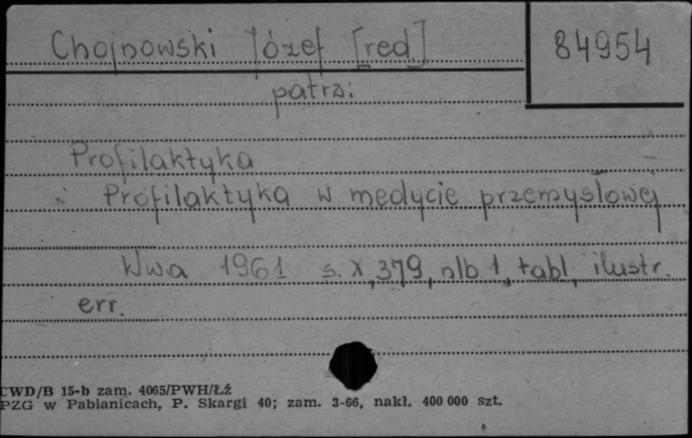 Chojnowski Józef [red]
84954
patrz:
Profilaktyka
Profilaktyka w medycie przemysłowej
Wwa 1961 s. X, 379, nlb. 1, tabl., ilustr.
err.
CWD/B 15-b zam. 4065/PWH/ŁŹ
PZG w Pabianicach, P. Skargi 40; zam. 3-66, nakł. 400 000 szt.